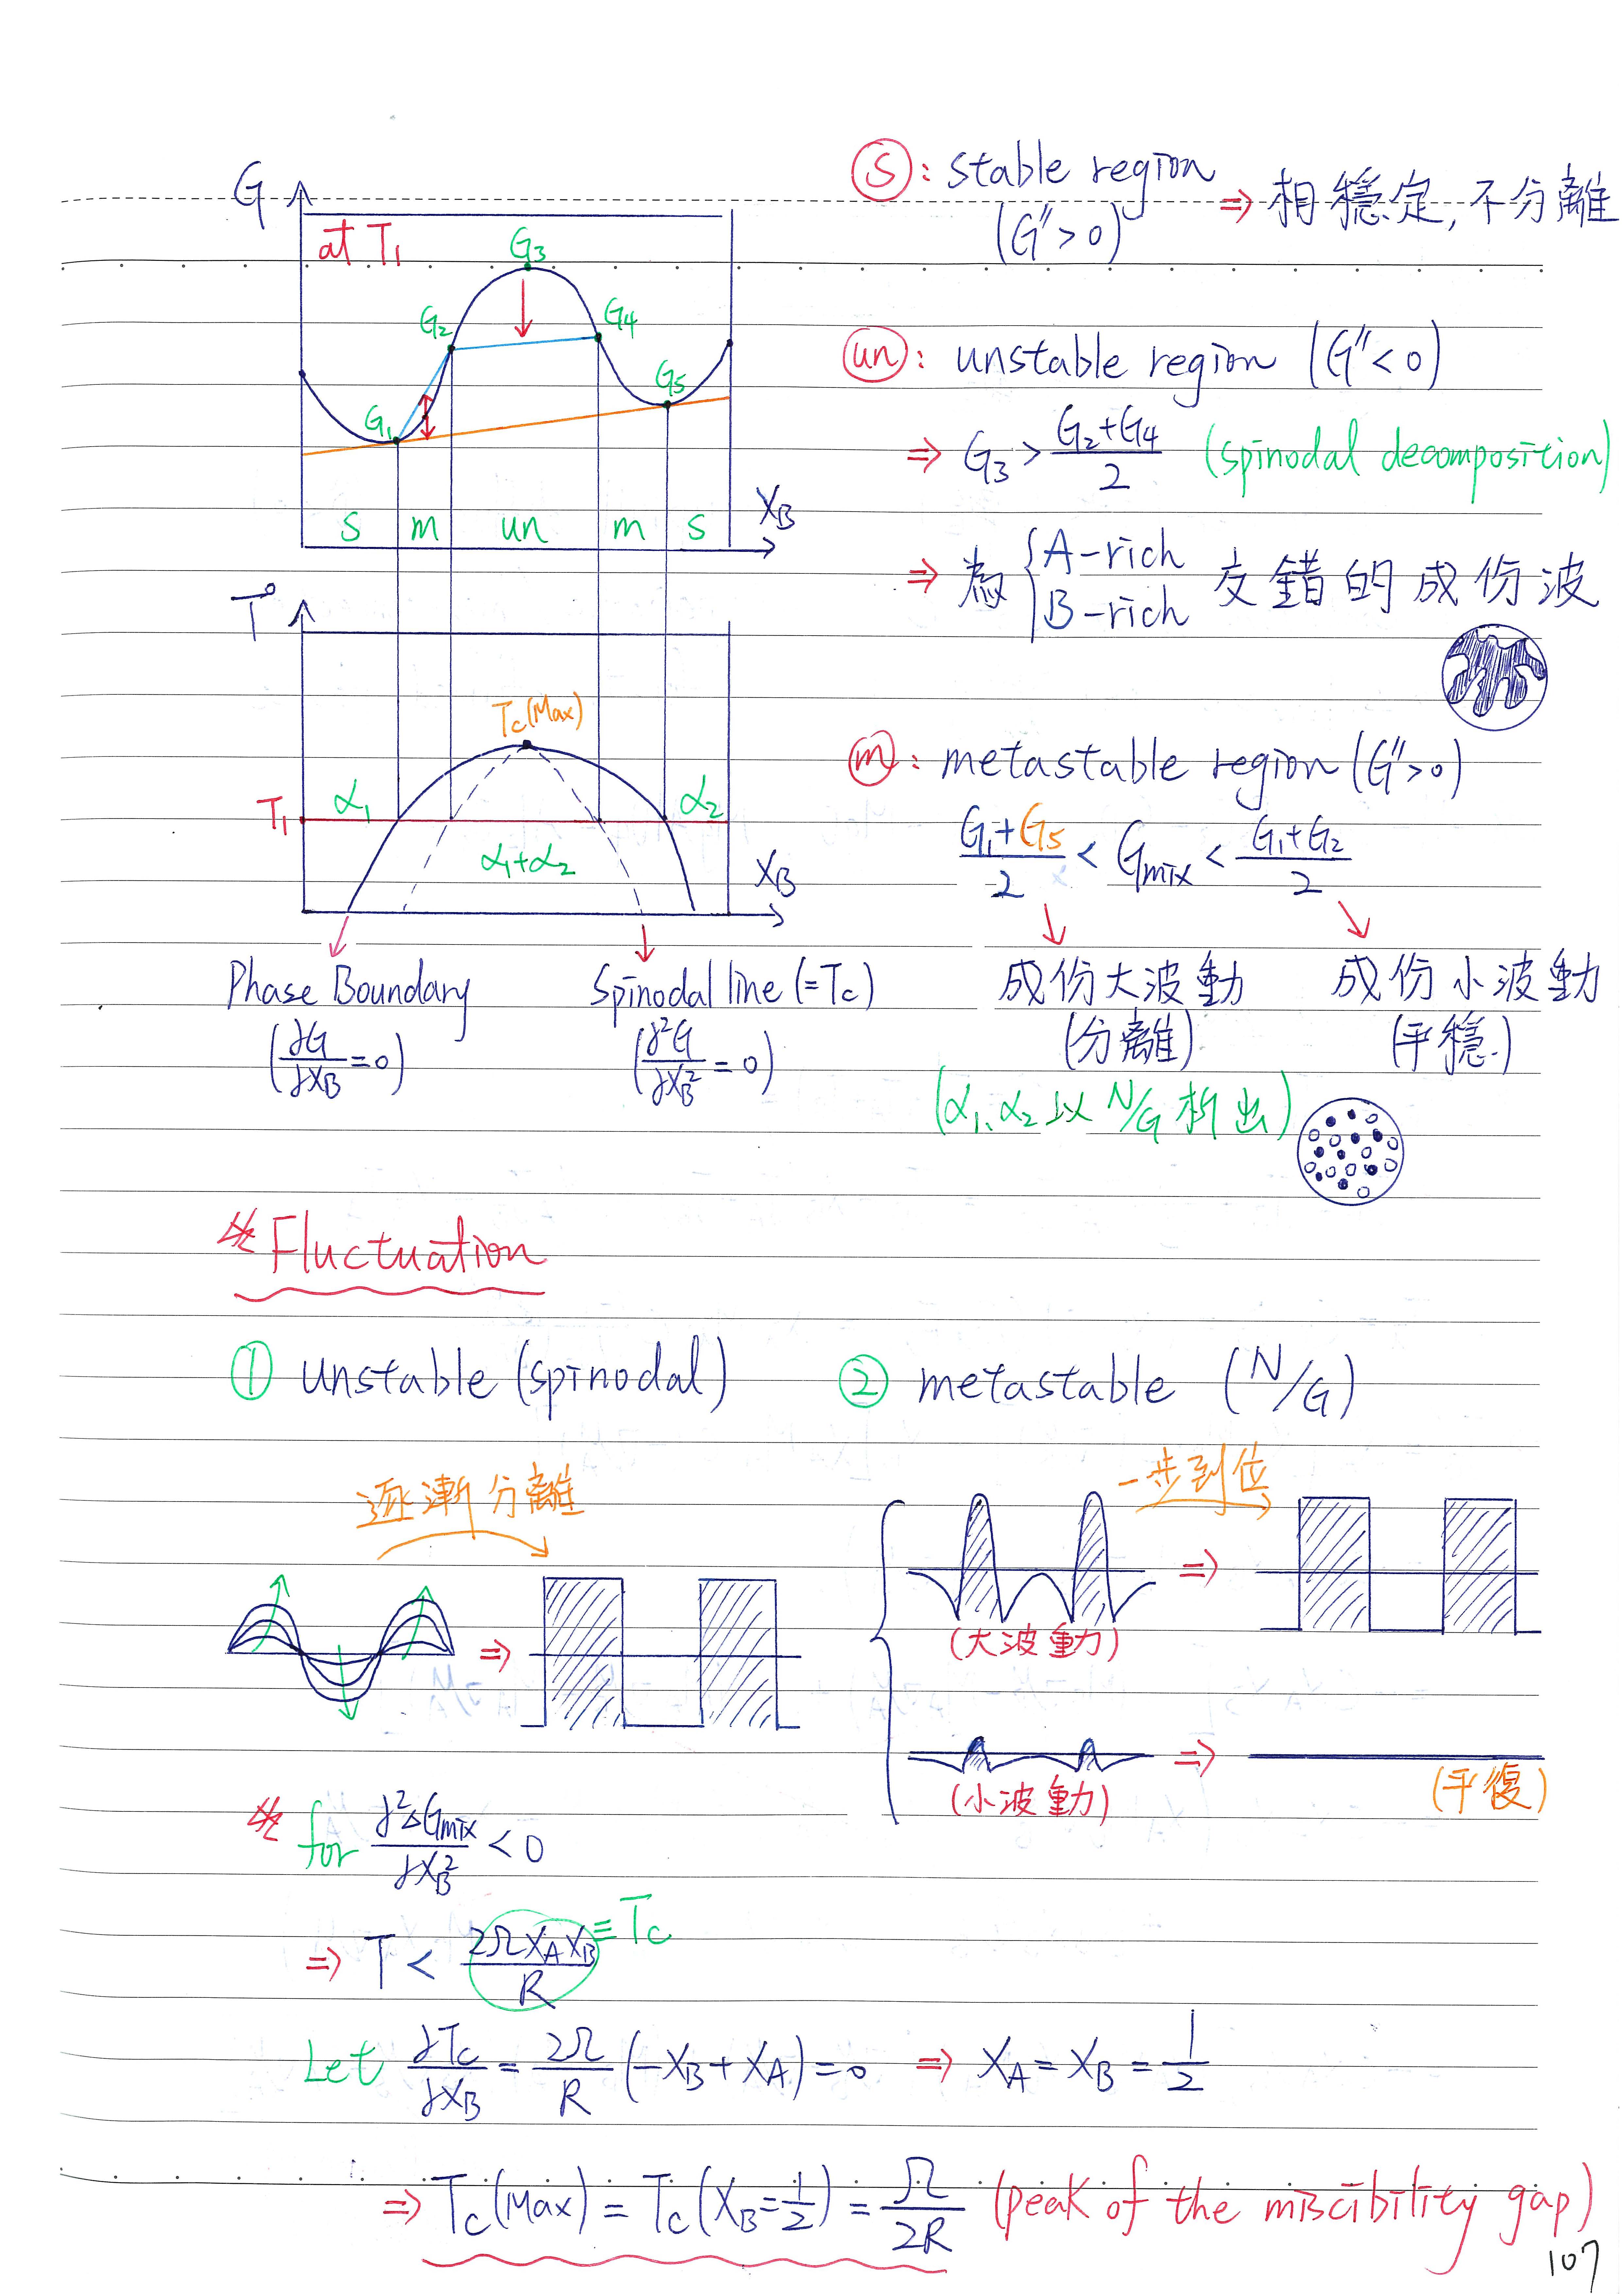 G
at T₁
G₃
G₂
G₄
G₅
G₁
S m un m S
X_B
T°
T_c(Max)
T₁
α₁
α₂
α₁+α₂
X_B
Phase Boundary
(∂G/∂X_B = 0)
Spinodal line (=T_c)
(∂²G/∂X_B² = 0)
Ⓢ: stable region ⇒ 相穩定,不分離
(G″>0)
(un): unstable region (G″<0)
⇒ G₃ > (G₂+G₄)/2 (spinodal decomposition)
⇒ 為 { A-rich B-rich 交錯的成份波
ⓜ: metastable region (G″>0)
(G₁+G₅)/2 < G_mix < (G₁+G₂)/2
成份大波動 成份小波動
(分離) (平穩)
(α₁、α₂以 N/G 析出)
Fluctuation
① unstable (spinodal) ② metastable (N/G)
逐漸分離
⇒
一步到位
⇒
(大波動)
⇒
(小波動)
(平復)
for ∂²ΔG_mix/∂X_B² < 0
⇒ T < 2ΩX_AX_B/R ≡ T_c
Let ∂T_c/∂X_B = 2Ω/R (-X_B + X_A) = 0 ⇒ X_A = X_B = 1/2
⇒ T_c(Max) = T_c(X_B=1/2) = Ω/2R (peak of the miscibility gap)
107